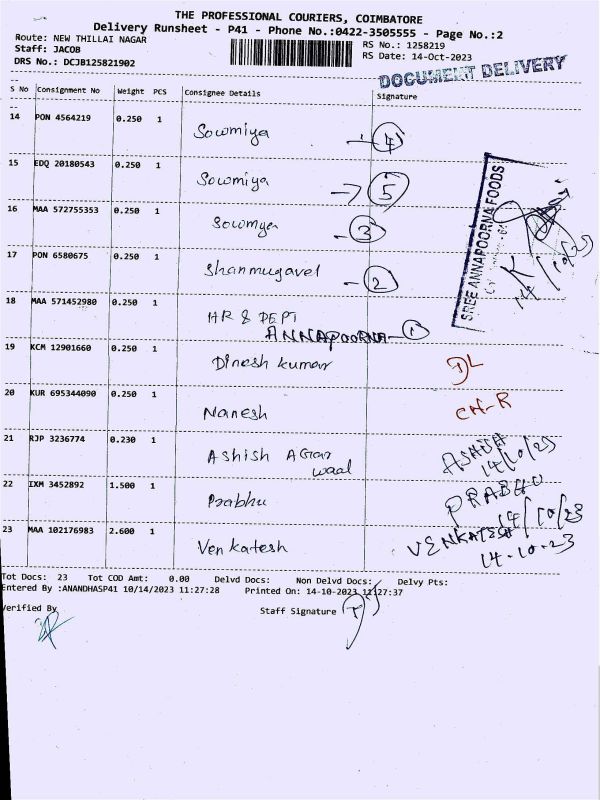 THE PROFESSIONAL COURIERS, COIMBATORE
Delivery Runsheet - P41 - Phone No.:0422-3505555 - Page No.:2
Route: NEW THILLAI NAGAR RS No.: 1258219
Staff: JACOB RS Date: 14-Oct-2023
DRS No.: DCJB125821902
DOCUMENT DELIVERY
S No Consignment No Weight PCS Consignee Details Signature
14 PON 4564219 0.250 1 Sowmiya 4
15 EDQ 20180543 0.250 1 Sowmiya 5
16 MAA 572755353 0.250 1 Sowmiya 3
17 PON 6580675 0.250 1 Shanmugavel 2
SREE ANNAPOORNA FOODS
18 MAA 571452980 0.250 1 HR & DEPT
ANNAPOORNA 1
19 KCM 12901660 0.250 1 Dinesh kumar DL
20 KUR 695344090 0.250 1 Nanesh CH-R
21 RJP 3236774 0.230 1 Ashish Agar
waal
ASHISH
14/10/23
22 IXM 3452892 1.500 1 Prabhu PRABHU
14/10/23
23 MAA 102176983 2.600 1 Venkatesh VENKATESH
14-10-23
Tot Docs: 23 Tot COD Amt: 0.00 Delvd Docs: Non Delvd Docs: Delvy Pts:
Entered By :ANANDHASP41 10/14/2023 11:27:28 Printed On: 14-10-2023 11:27:37
Verified By Staff Signature